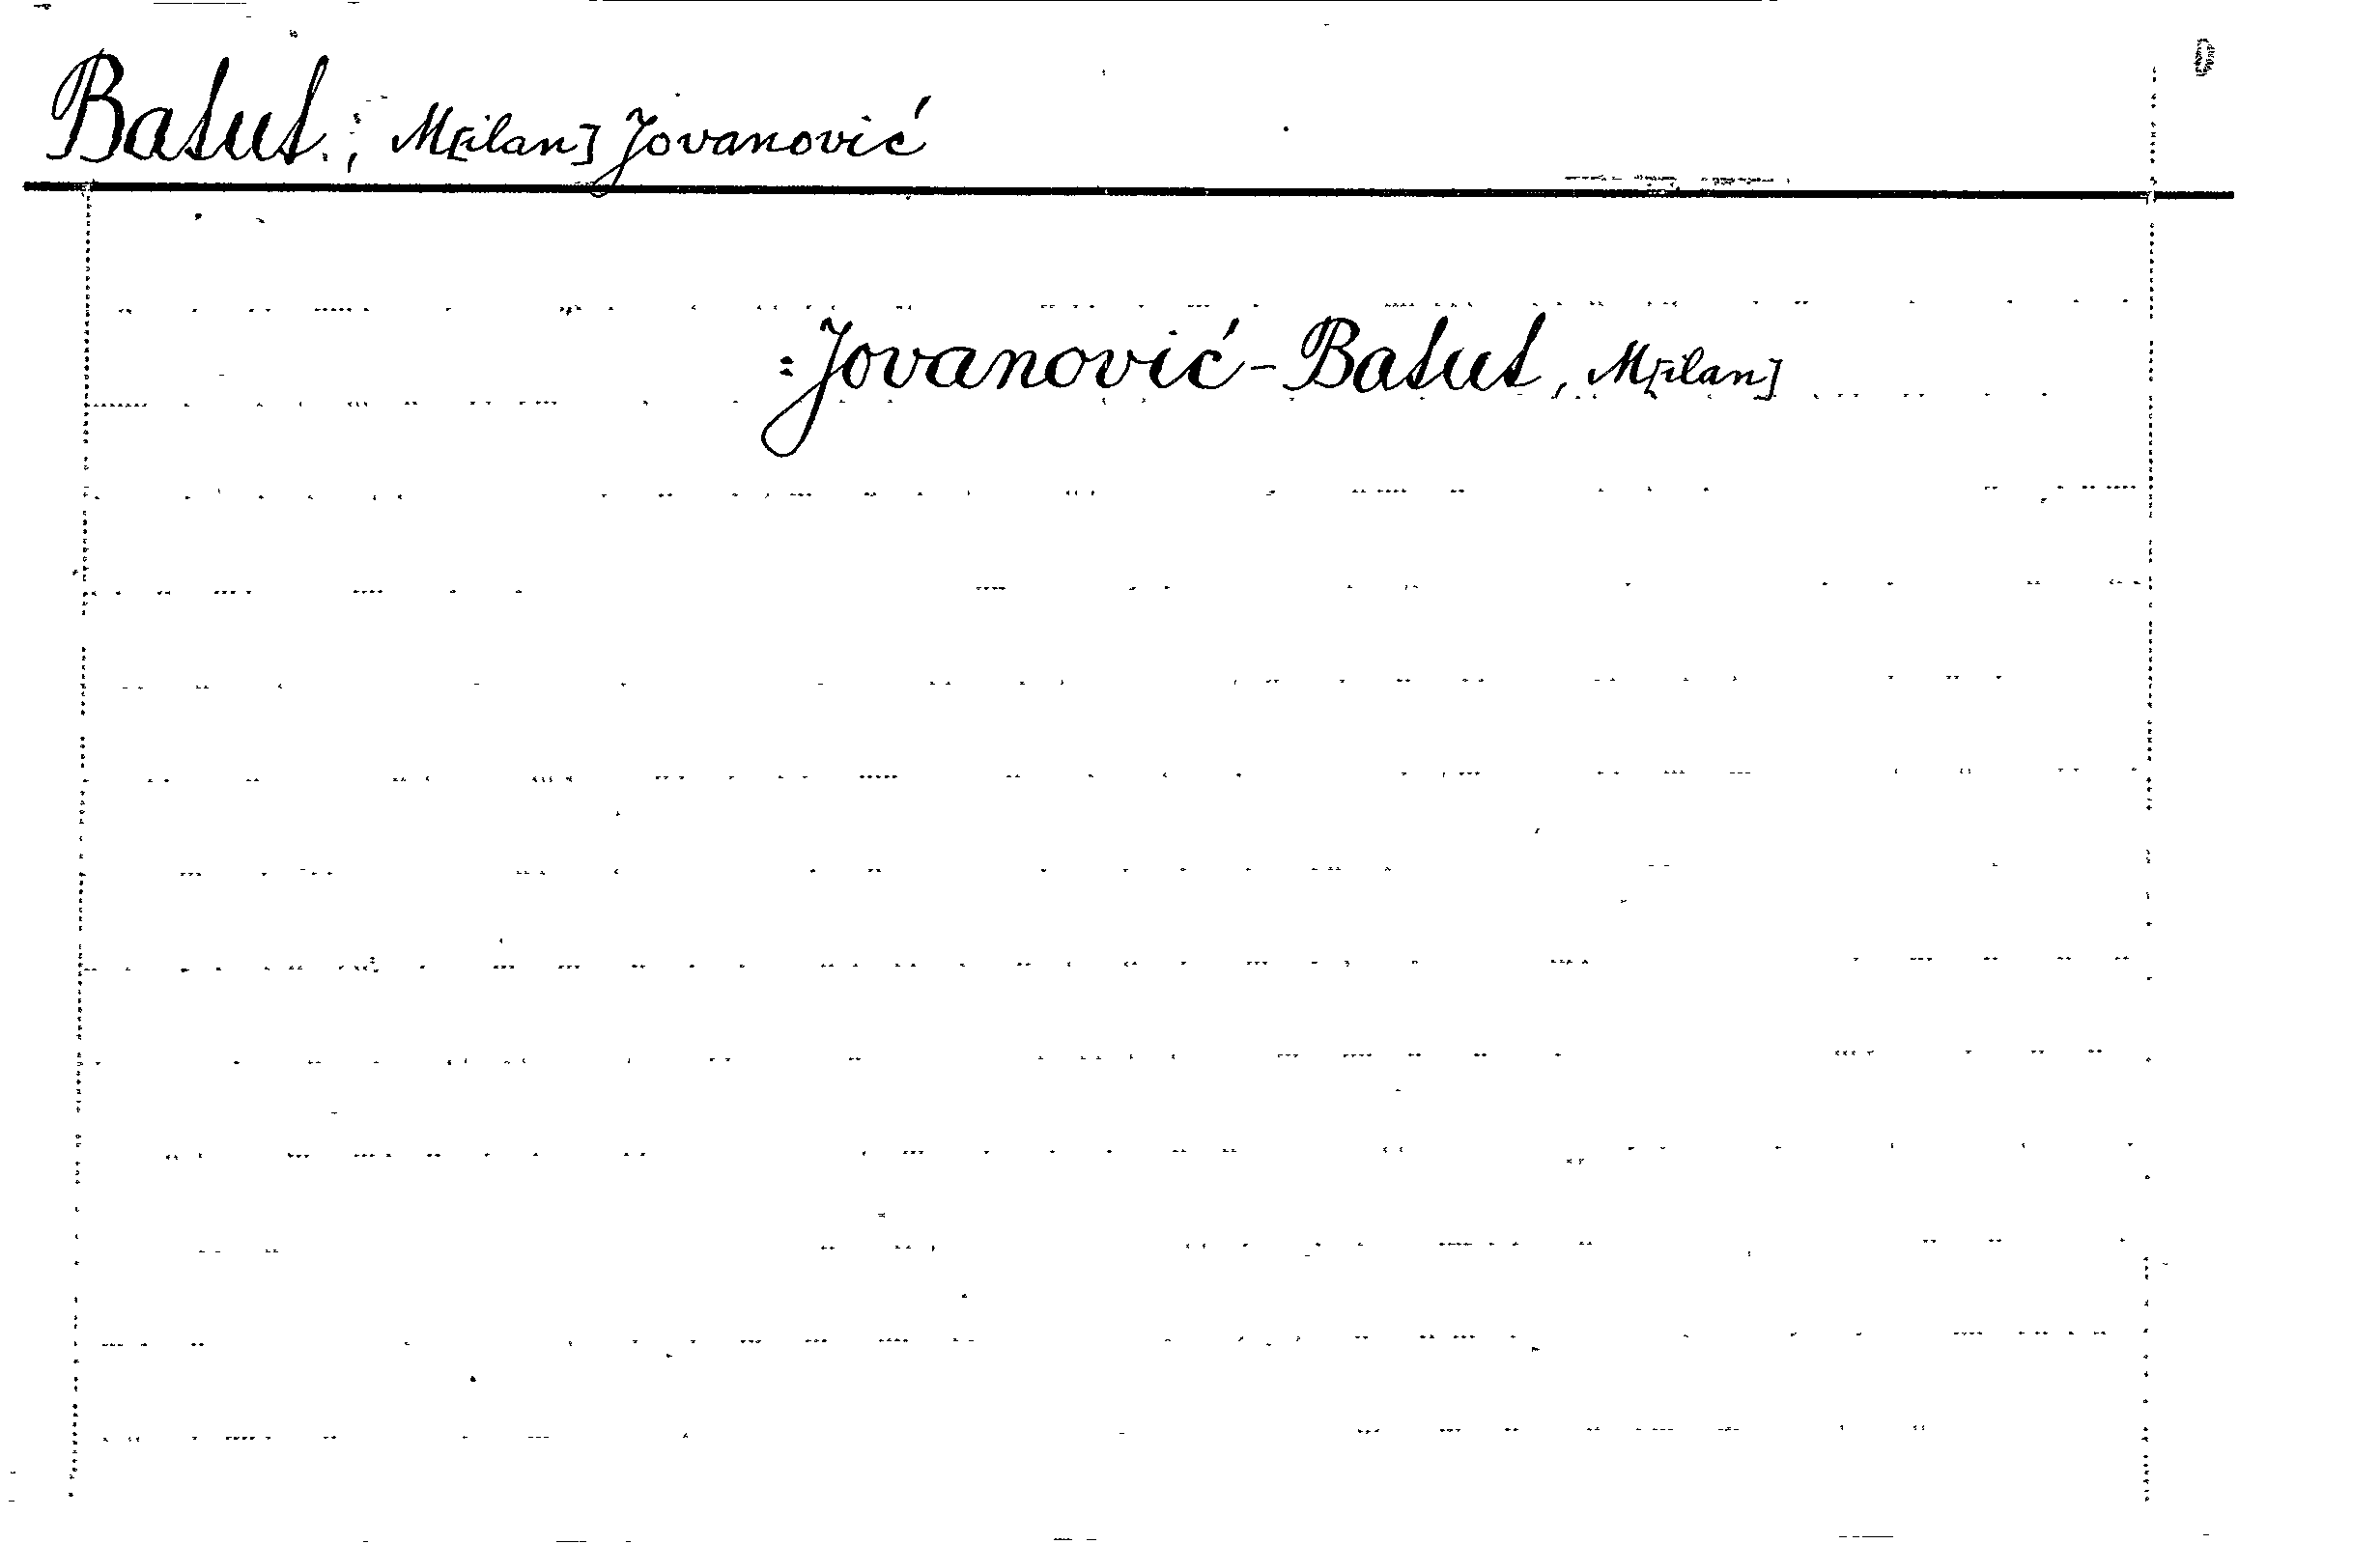 Batut, M[ilan] Jovanović
=Jovanović-Batut, M[ilan]